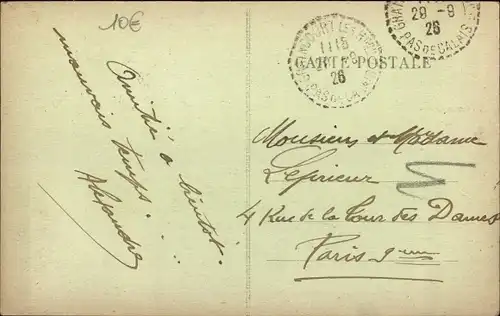 10€
CARTE POSTALE
11 15
26
PAS DE CALAIS
29 - 9
26
PAS DE CALAIS
Amitié à bientôt.
mauvais temps . . .
Alexandre
Monsieur et Madame
Leprieur
4 Rue de la Tour des Dames
Paris 9ème